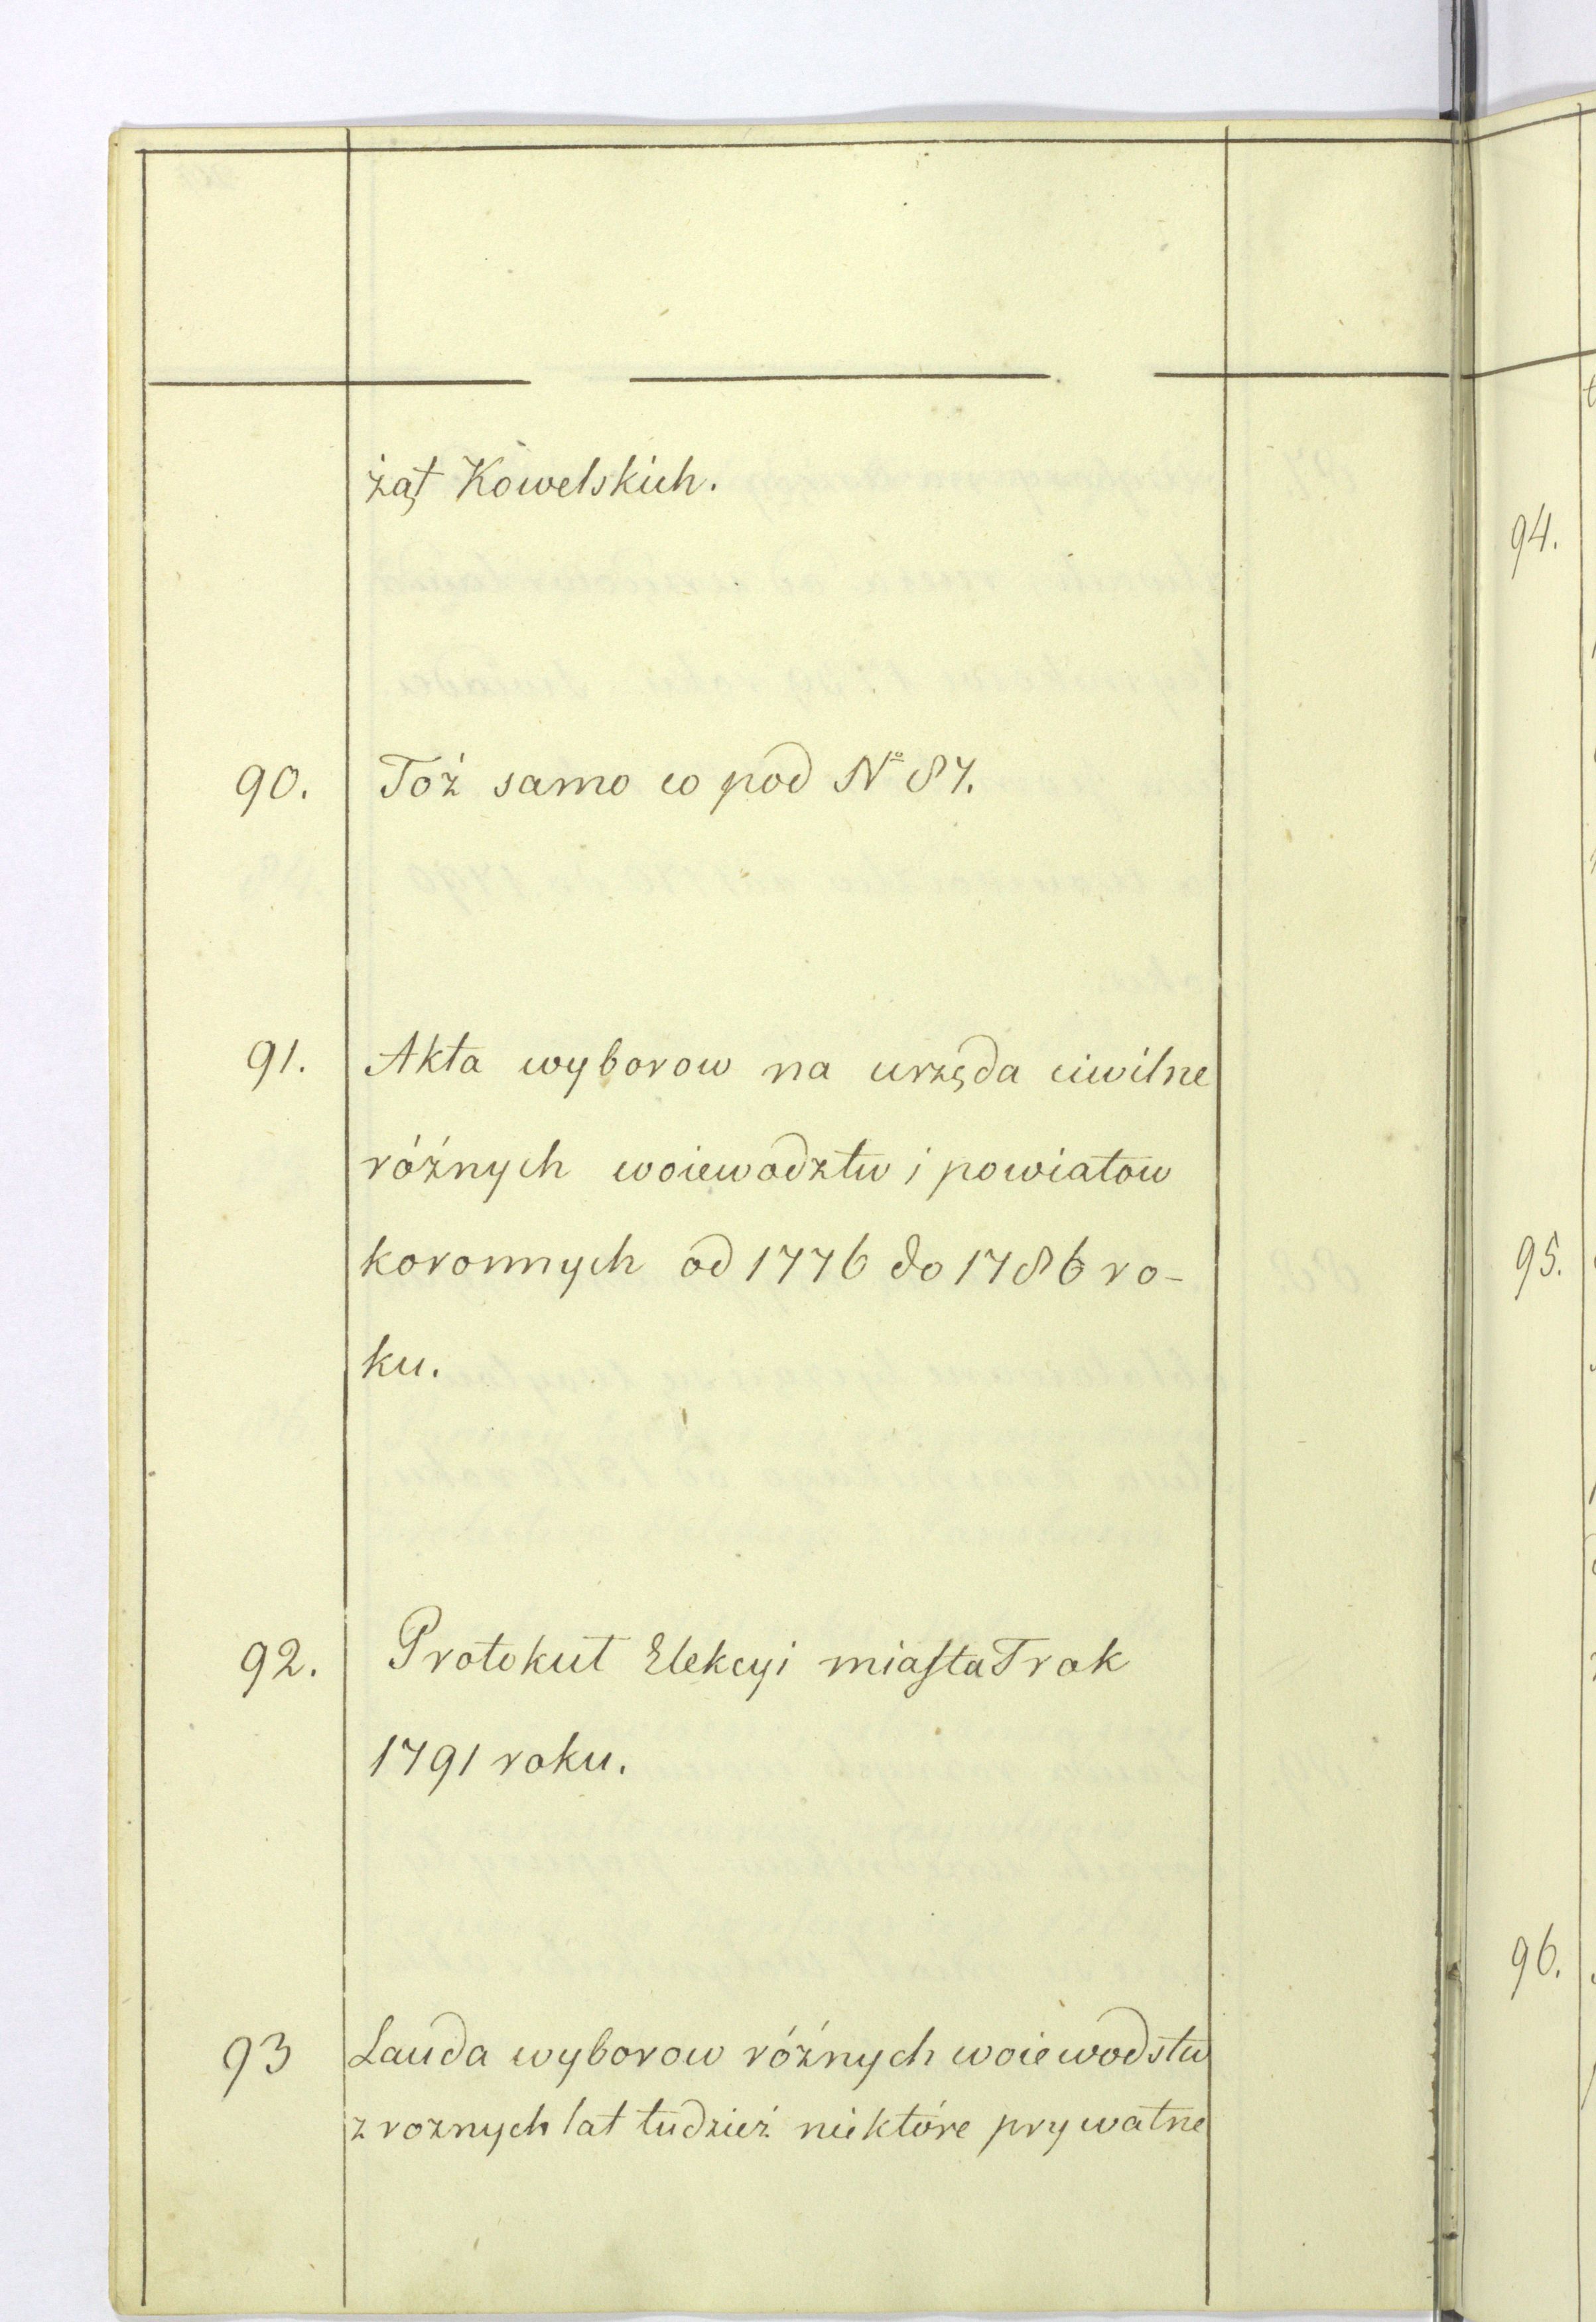 żąt Kowelskich.
90. Toż samo co pod № 87.
91. Akta wyborow na urzęda ciwilne
różnych woiewodztw i powiatow
koronnych od 1776 do 1786 ro-
ku.
92. Protokuł Elekcyi miasta Trok
1791 roku.
93 Lauda wyborow różnych woiewodstw
z roznych lat tudzież niektóre prywatne
94.
95.
96.